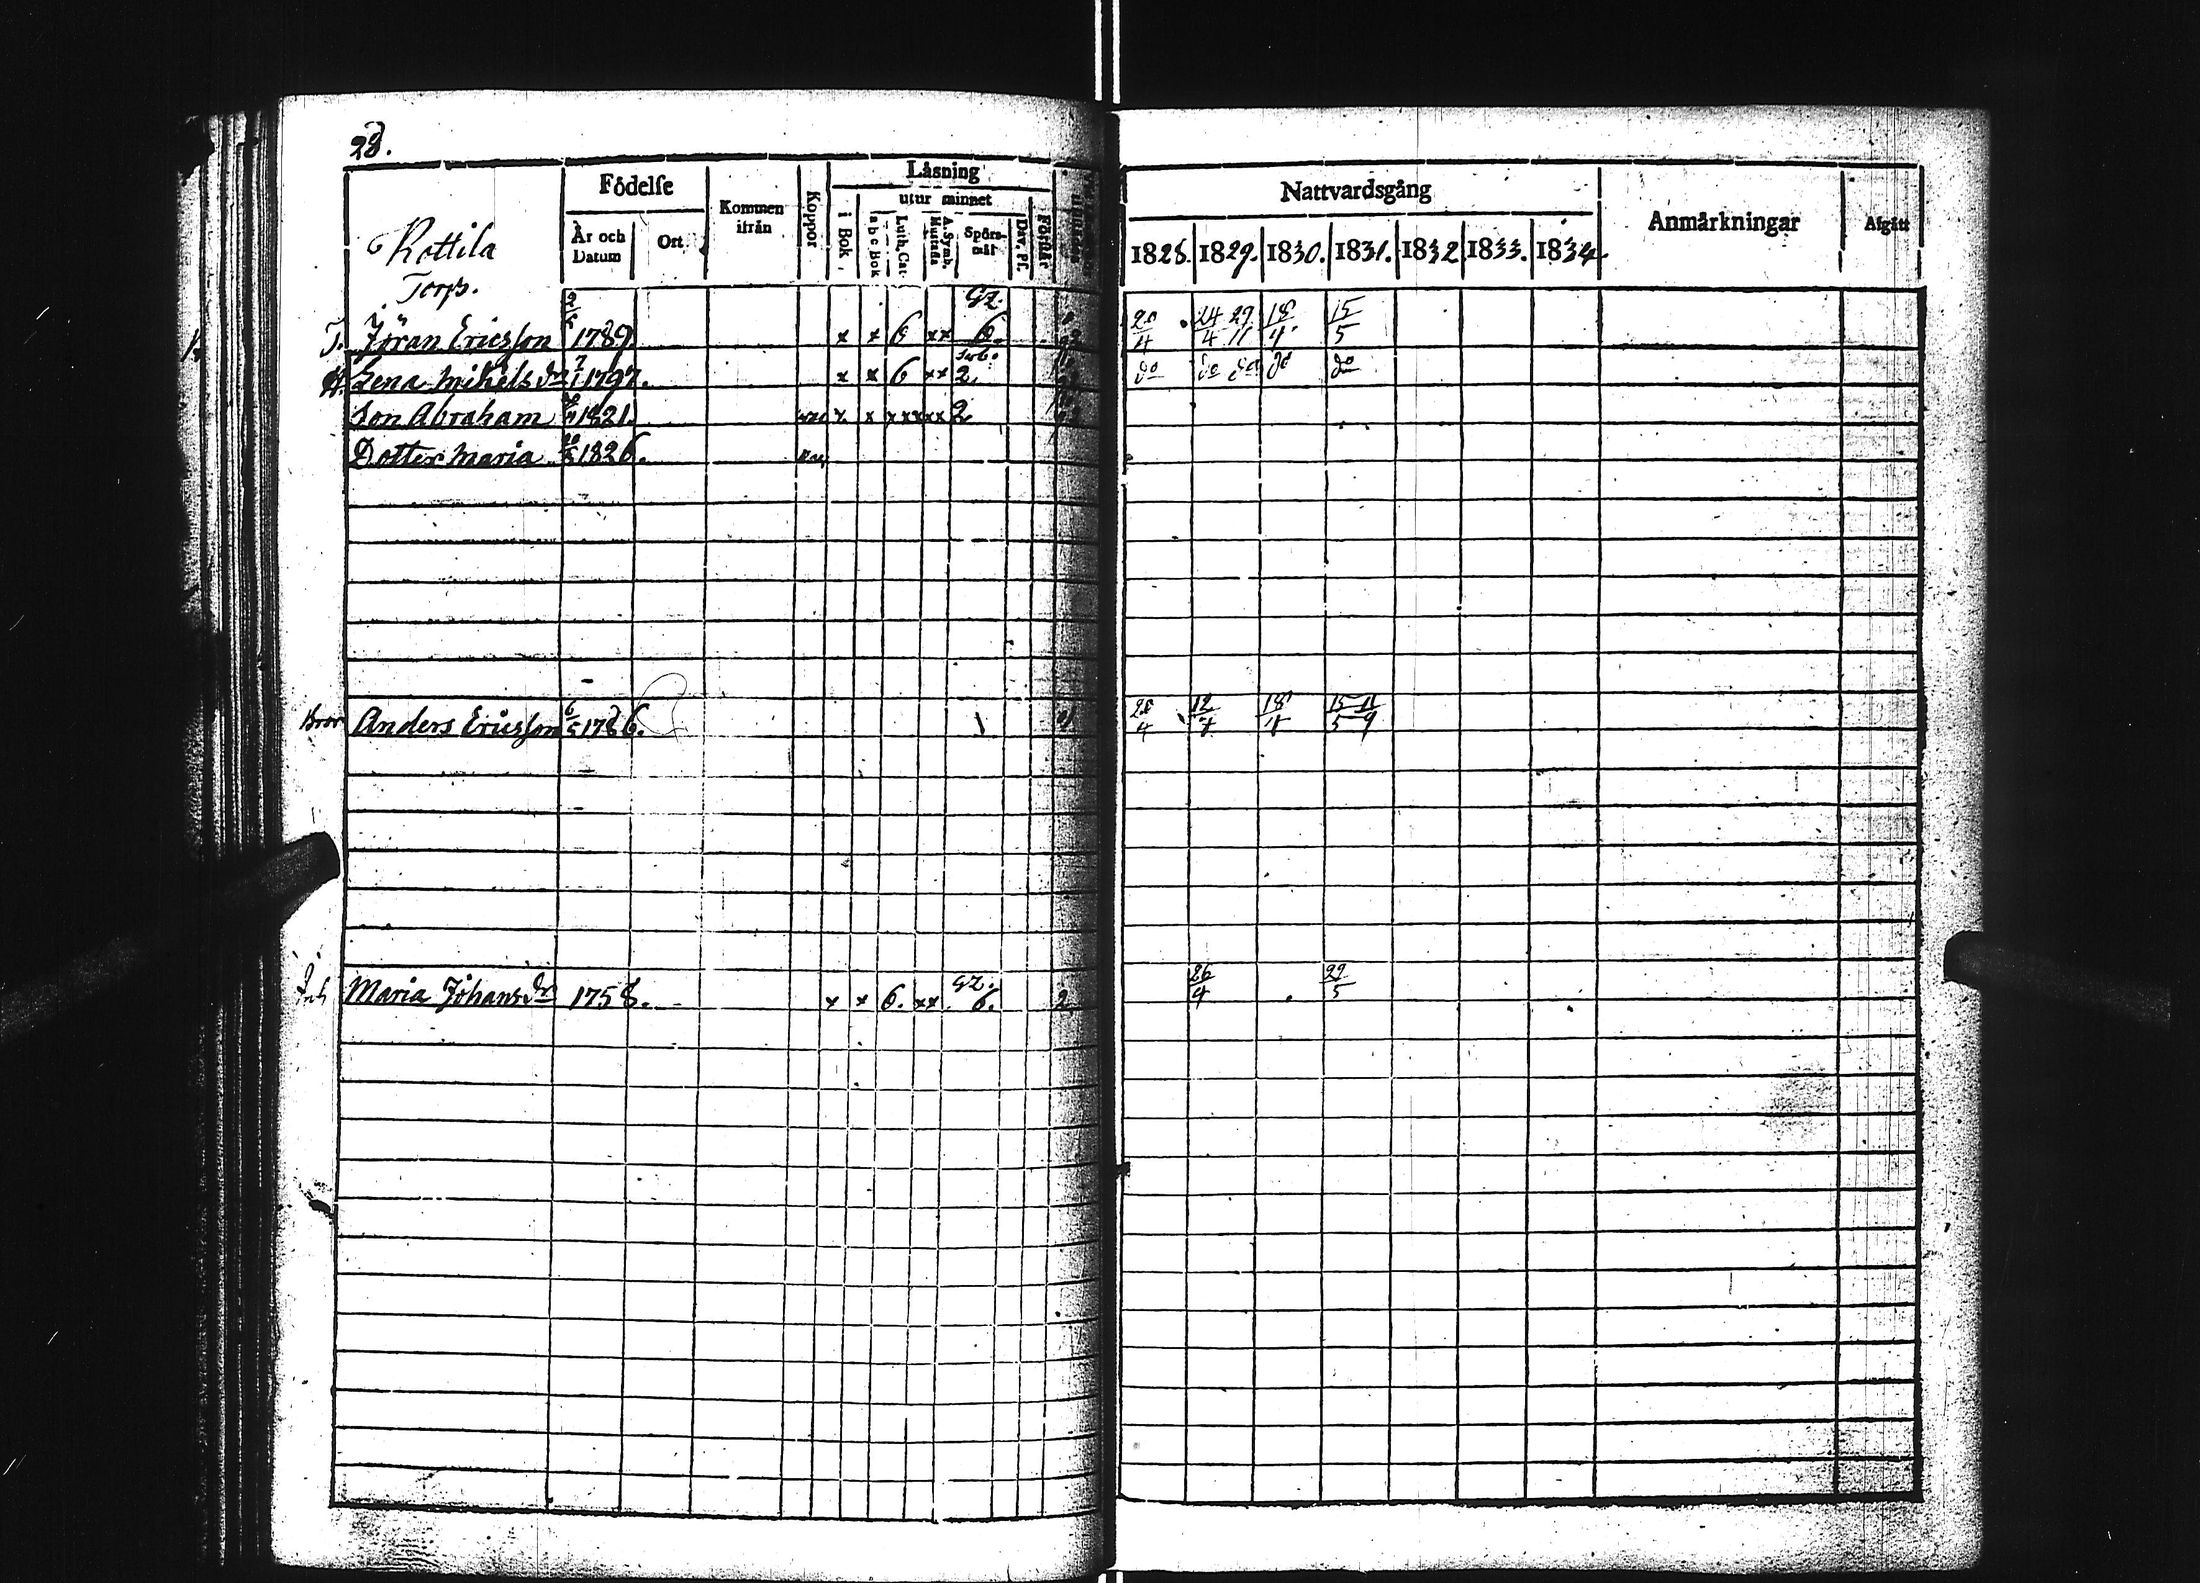 28.
Rottila
Torp.
Födelse
År och Datum
Ort
Kommen ifrån
Koppor
Läsning
i Bok
utur minnet
a b c Bok
Luth. Cat.
A. Symb.
Hustafla
Spörs-mål
Dav. Pf.
Förstår
Nattvardsgång
1828. 1829. 1830. 1831. 1832 1833. 1834.
Anmärkningar
Afgått
T. Jöran Ericsson 1789. x x 6 xx gz. 6. 20/4 24/4 29/11 18/4 15/5
H. Lena Mikels dr 7/1 1797. x x 6 xx 2. do do do do do
Son Abraham 1821. x x x x x x x 2
Dotter Maria 1826.
Bror Anders Ericsson 6/5 1786. 1 20/4 12/4 18/4 15/5 11/9
Inh Maria Johans dr 1758. x x 6. xx. gz. 6. 2 26/4 29/5